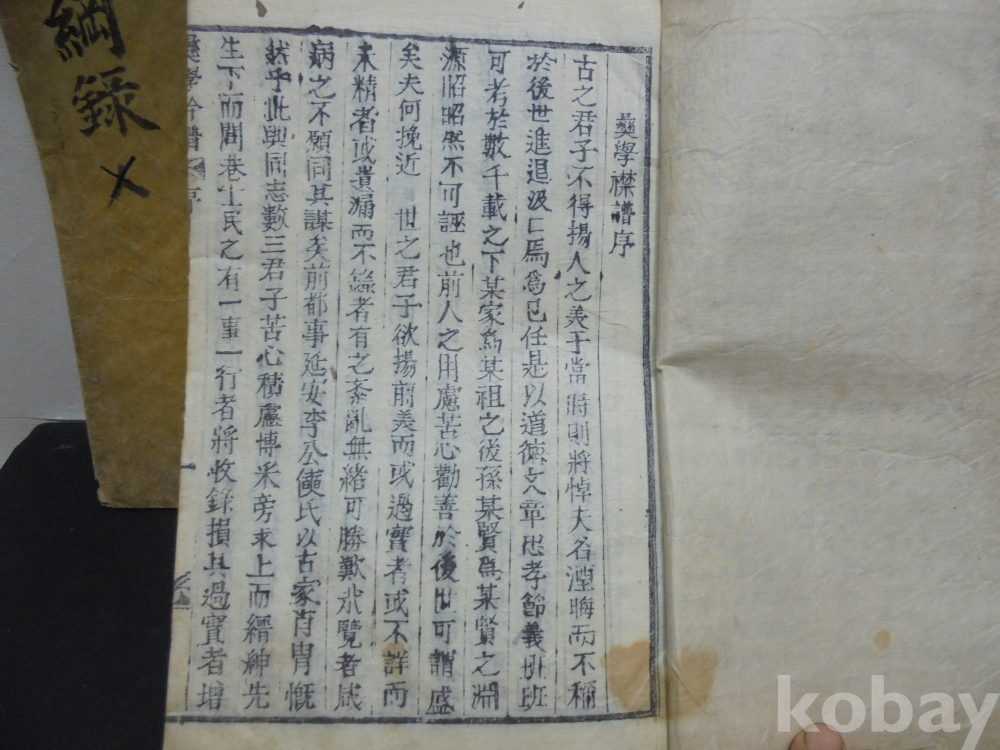 彛學襟譜序
古之君子不得揚人之美于當時則將悼夫名湮晦而不稱
於後世進退汲口焉爲已任是以道德文章忠孝節義班班
可考於數千載之下某家爲某祖之後孫某賢爲某賢之淵
源昭昭然不可誣也前人之用慮苦心勸善於後世可謂盛
矣夫何挽近 世之君子欲揚前義而或過實者或不詳而
未精者或遺漏而不錄者有之紊亂無緖可勝歎哉覽者咸
病之不願同其謀矣前都事延安李公氏以古家肖胄慨
然乎此與同志數三君子苦心積慮博采旁求上而縉紳先
生下而閭巷士民之有一事一行者將收錄損其過實者增
序
一
綱錄
kobay